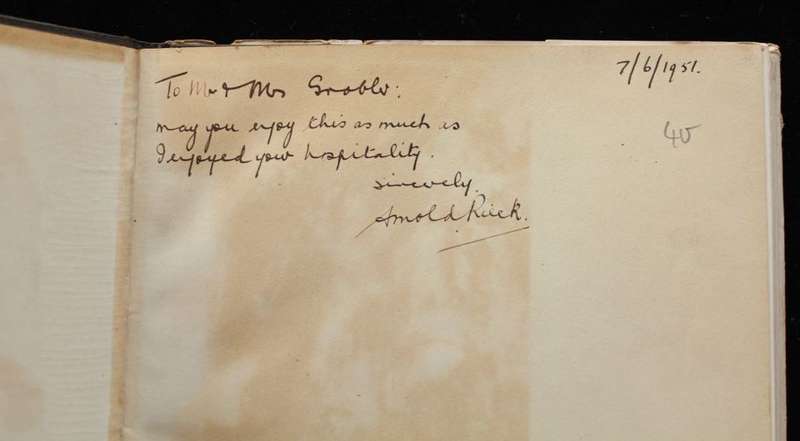 7/6/1951.
To Mr & Mrs Grobler:
may you enjoy this as much as
I enjoyed your hospitality.
sincerely,
Arnold Rieck.